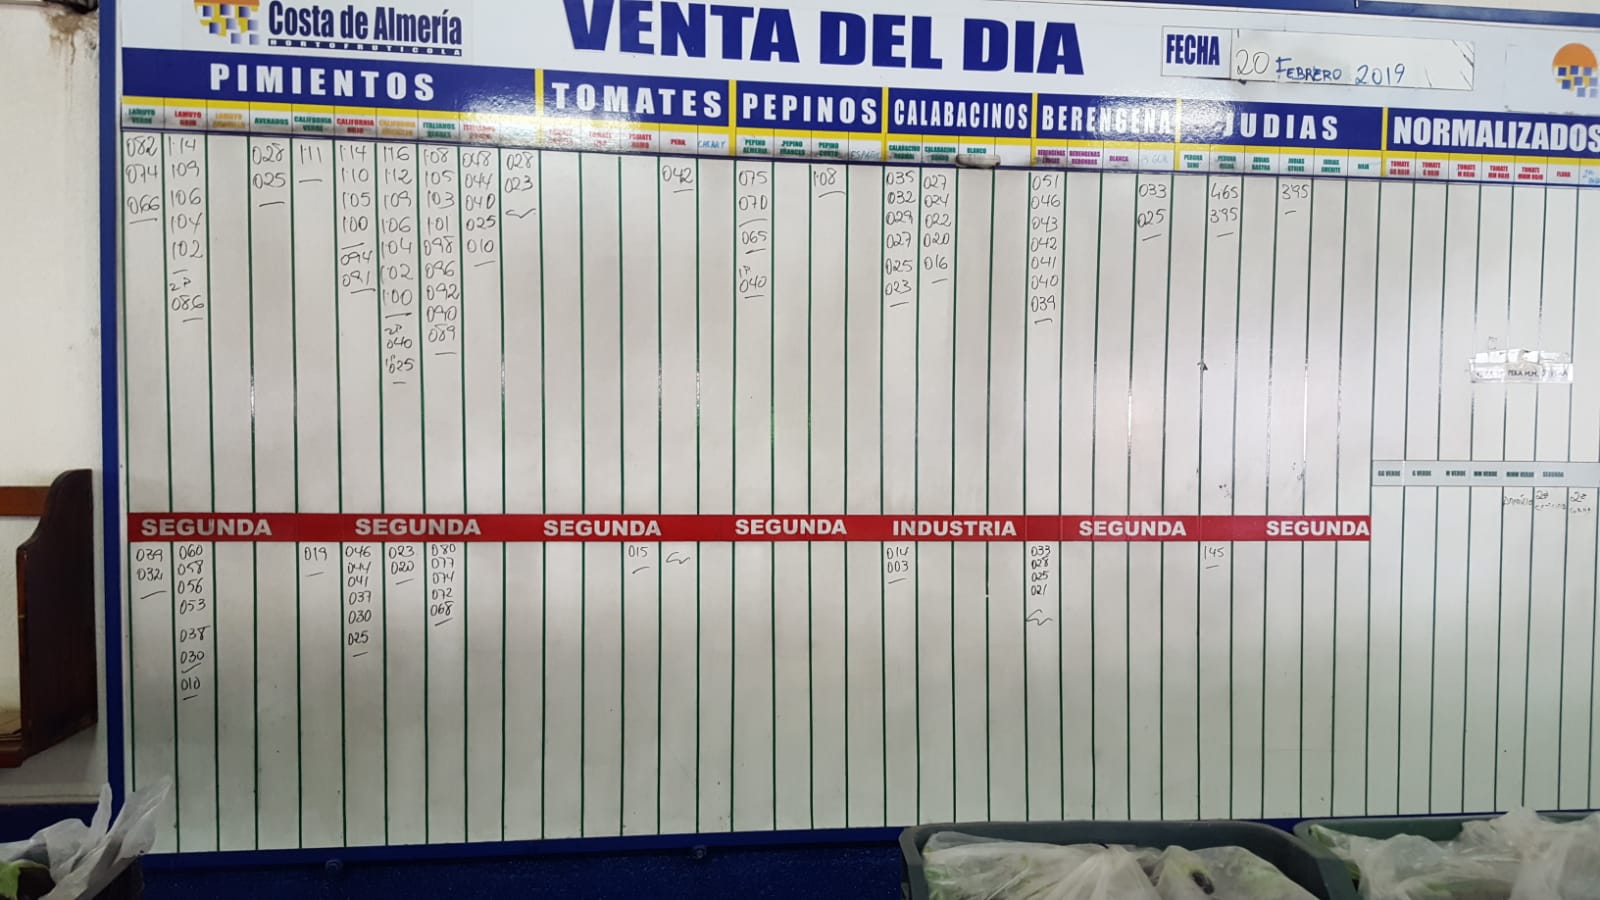 Costa de Almería
HORTOFRUTICOLA
VENTA DEL DIA
FECHA 20 FEBRERO 2019
PIMIENTOS TOMATES PEPINOS CALABACINOS BERENGENA JUDIAS NORMALIZADOS
LAMUYO VERDE
LAMUYO ROJO
CALIFORNIA VERDE
CALIFORNIA ROJO
PERA
CHERRY
PEPINO ALMERIA
PEPINO FRANCES
PEPINO CORTO
BLANCO
BLANCA
082
074
066
1'14
109
106
104
102
2P
086
028
025
1'11
1'14
1'10
105
100
094
091
1'16
1'12
109
106
104
102
1'00
2P
040
1P
025
1'08
105
103
1'01
098
096
092
090
089
048
044
040
025
010
028
023
042
075
070
065
1P
040
1'08
035
032
029
027
025
023
027
024
022
020
016
051
046
043
042
041
040
039
033
025
465
395
395
GG VERDE G VERDE M VERDE MM VERDE MMM VERDE SEGUNDA
SEGUNDA SEGUNDA SEGUNDA SEGUNDA INDUSTRIA SEGUNDA SEGUNDA
039
032
060
058
056
053
038
030
010
019
046
044
041
037
030
025
023
020
080
077
074
072
068
015
014
003
033
028
025
021
145